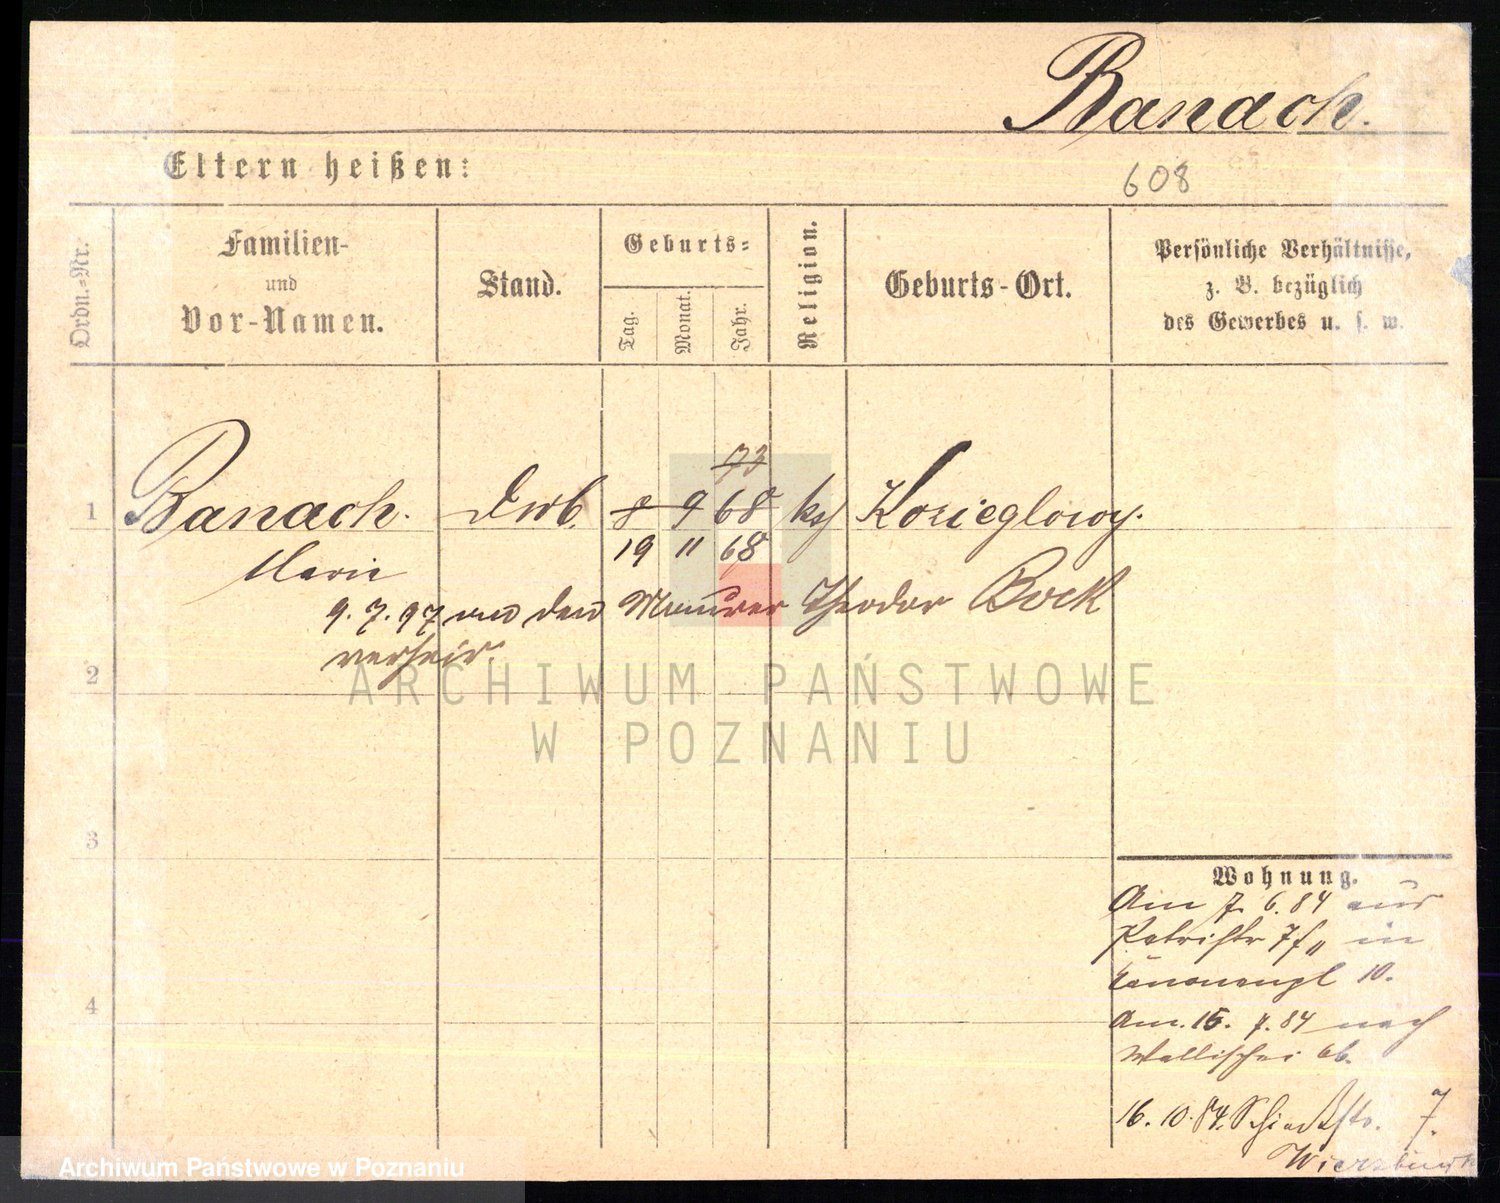 Banach.
Eltern heißen:
608
Ordn.-Nr.
Familien-
und
Vor-Namen.
Stand.
Geburts-
Tag.
Monat.
Jahr.
Religion.
Geburts-Ort.
Persönliche Verhältnisse,
z. B. bezüglich
des Gewerbes u. s. w.
73
1 Banach. 8 9 68 Kozieglowy.
Marie 19 11 68
9. 7. 97 an den Maurer Theodor Bock
verheir.
2
ARCHIWUM PAŃSTWOWE
W POZNANIU
3
4
Wohnung.
Am 7. 6. 84 aus
in
10.
Am. 15. 7. 84 nach
Wallischei 66.
16. 10. 84. Schießstr. 7.
Archiwum Państwowe w Poznaniu